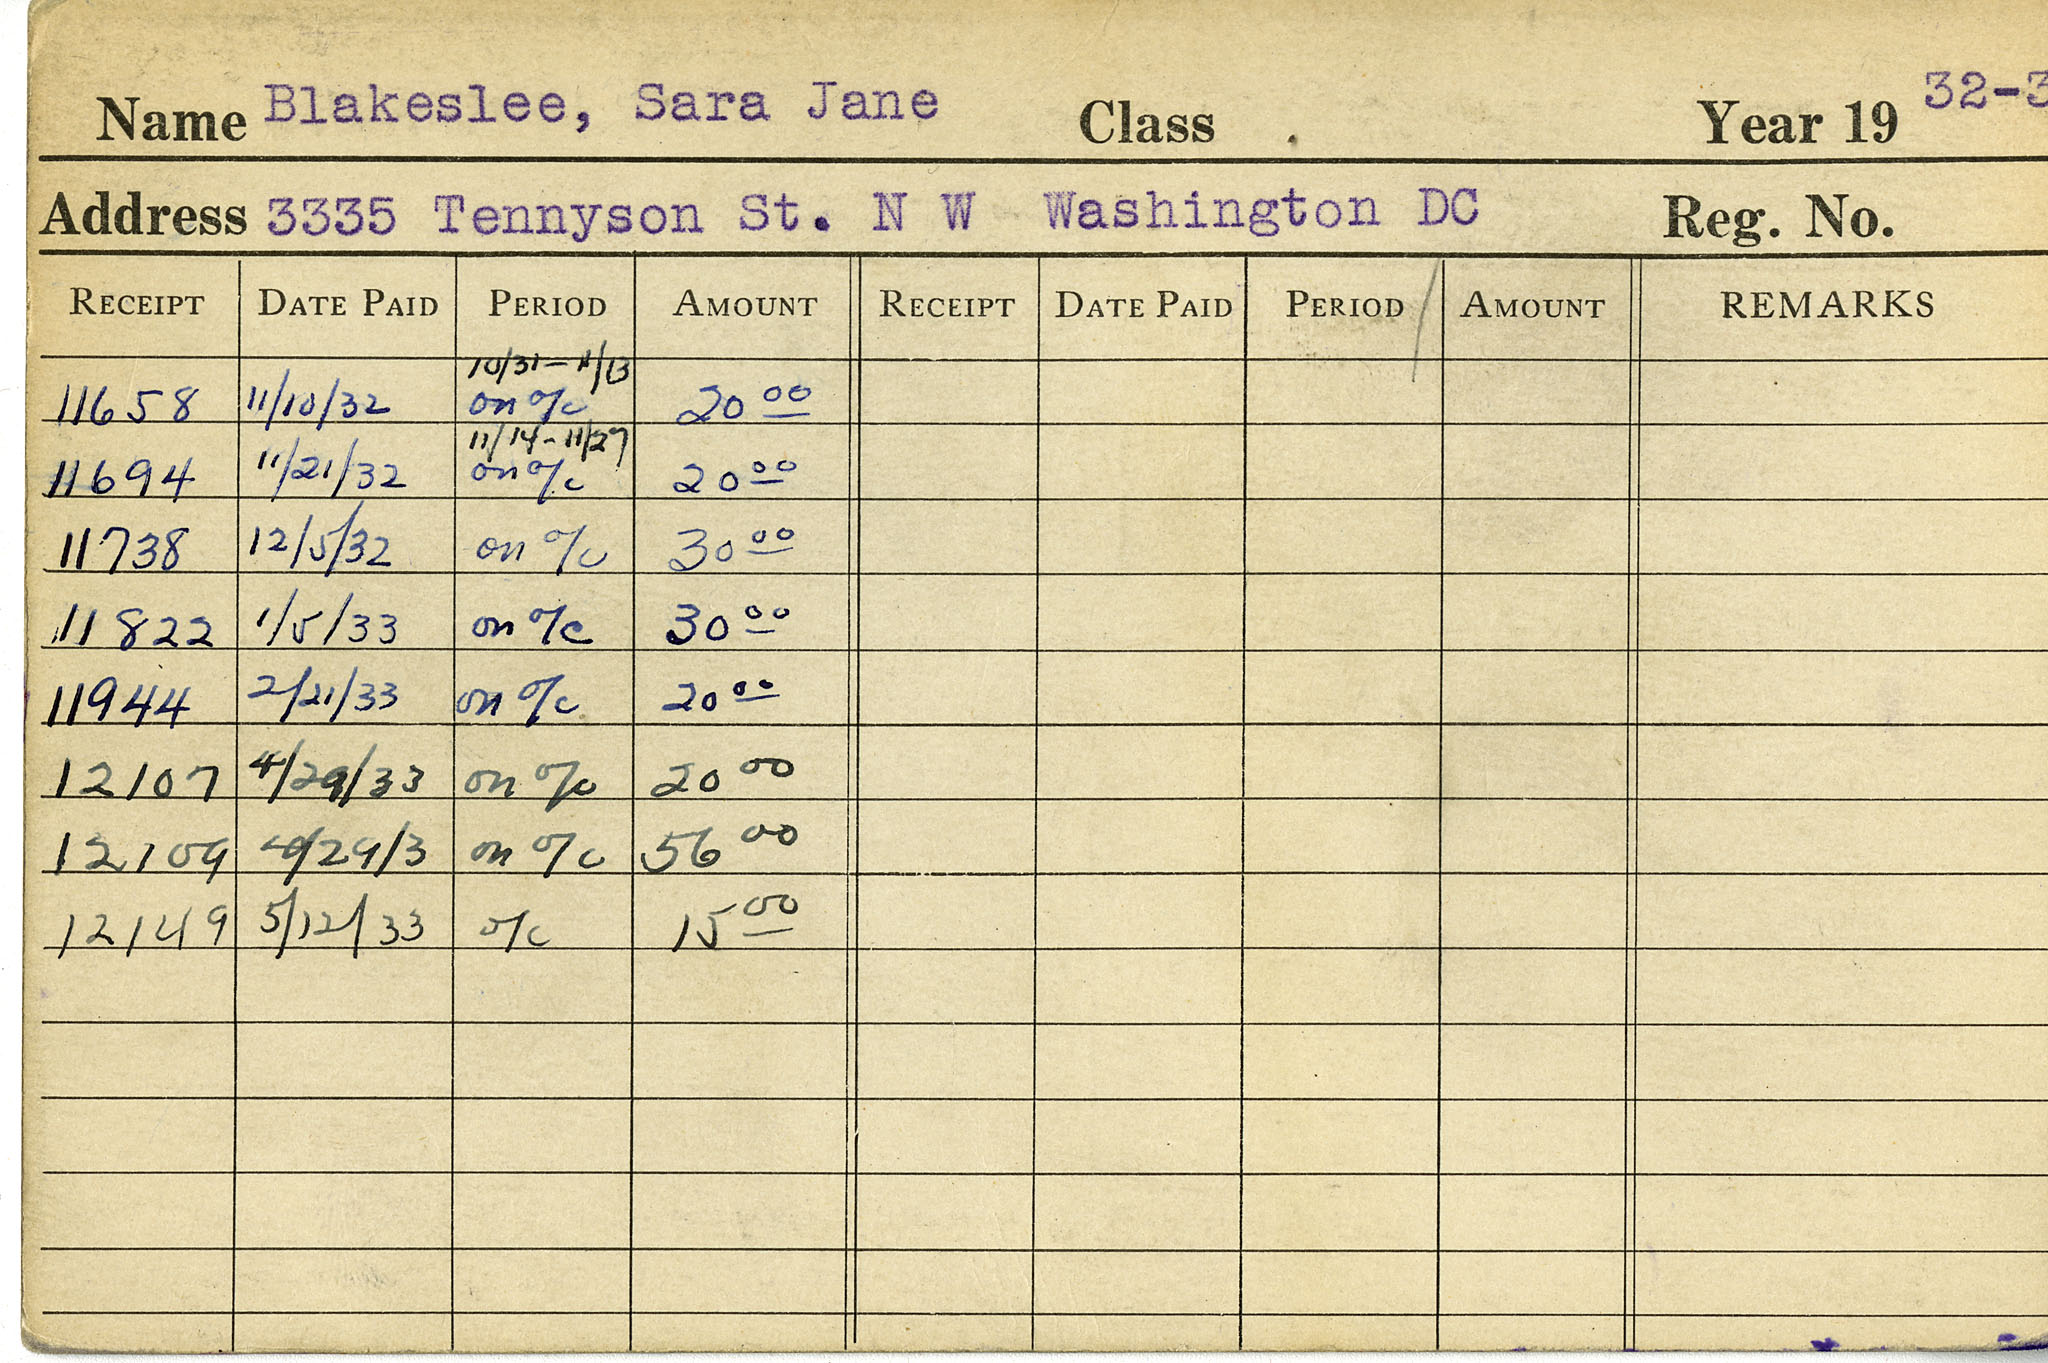 Name Blakeslee, Sara Jane Class . Year 19 32-3
Address 3335 Tennyson St. N W Washington DC Reg. No.
RECEIPT DATE PAID PERIOD AMOUNT RECEIPT DATE PAID PERIOD AMOUNT REMARKS
10/31-11/13
11658 11/10/32 on a/c 20 00
11/14-11/27
11694 11/21/32 on a/c 20 00
11738 12/5/32 on a/c 30 00
11822 1/5/33 on a/c 30 00
11944 2/21/33 on a/c 20 00
12107 4/29/33 on a/c 20 00
12109 4/29/3 on a/c 56 00
12149 5/12/33 a/c 15 00